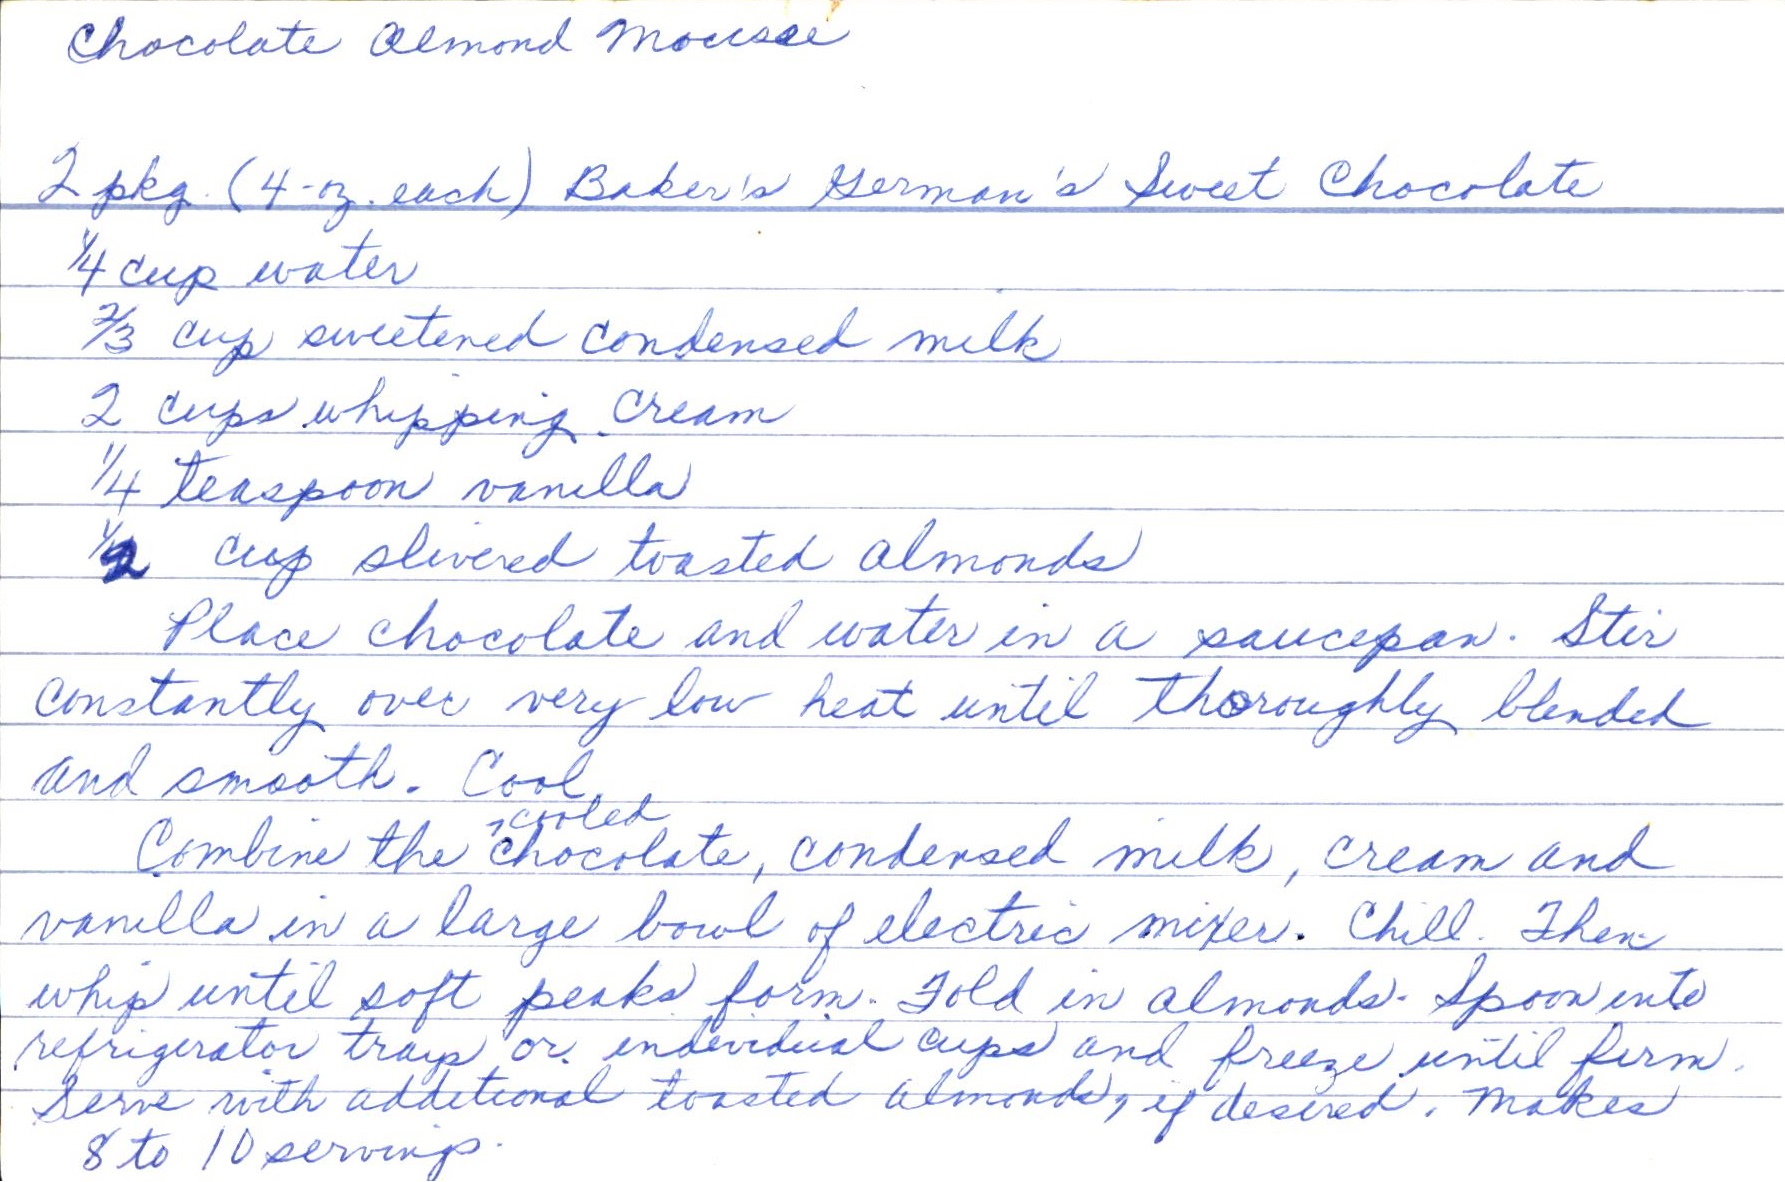 Chocolate Almond Mousse
2 pkg. (4-oz. each) Baker's German's Sweet Chocolate
1/4 cup water
2/3 cup sweetened condensed milk
2 cups whipping cream
1/4 teaspoon vanilla
1/2 cup slivered toasted almonds
Place chocolate and water in a saucepan. Stir
constantly over very low heat until thoroughly blended
and smooth. Cool.
cooled
Combine the chocolate, condensed milk, cream and
vanilla in a large bowl of electric mixer. Chill. Then
whip until soft peaks form. Fold in almonds. Spoon into
refrigerator trays or individual cups and freeze until firm.
Serve with additional toasted almonds, if desired. Makes
8 to 10 servings.